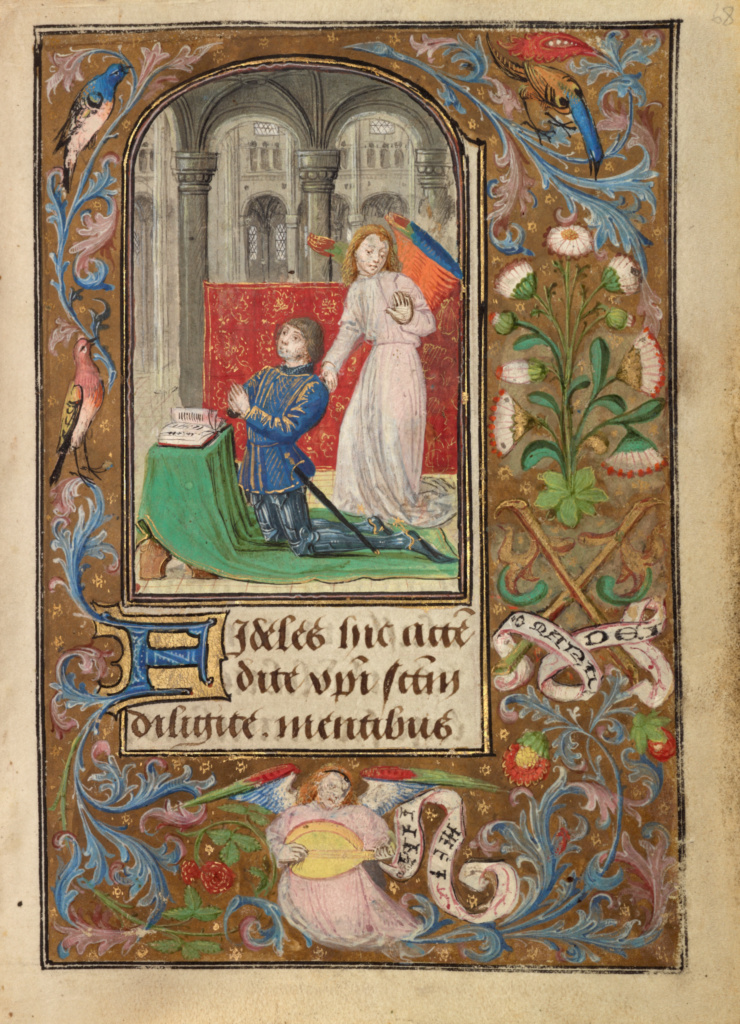 68
FIdeles hic attē
dite xp̄i sc̄tm
diligite . mentibus
DEI